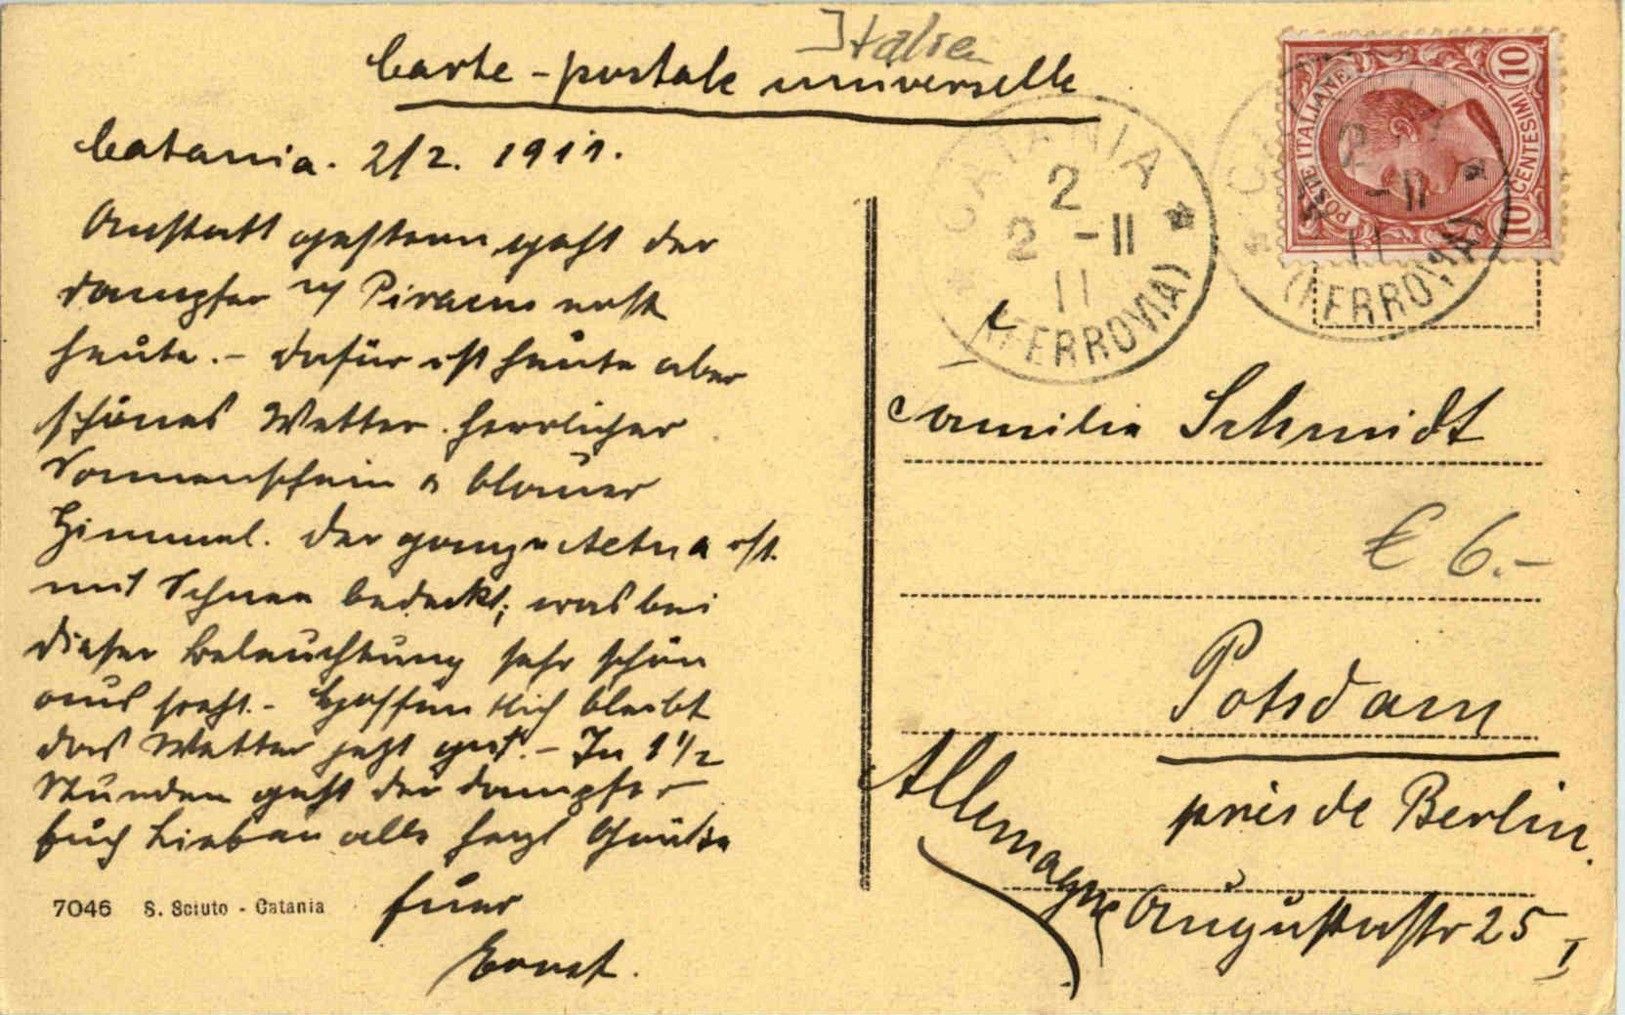 Italien
Carte-postale universelle
Catania. 2/2. 1911.
Anstatt gestern geht der
Dampfer n/ Piraeus erst
heute. – Dafür ist heute aber
schönes Wetter. Herrlicher
Sonnenschein & blauer
Himmel. Der ganze Aetna ist
mit Schnee bedeckt, was bei
dieser Beleuchtung sehr schön
aus sieht. – Hoffentlich bleibt
das Wetter jetzt gut. – In 1 1/2
Stunden geht der Dampfer
Euch Lieben alle herzl Grüße
Euer
Ernst.
7046 S. Sciuto - Catania
CATANIA
2
2 -11
11
(FERROVIA)
POSTE ITALIANE
10 CENTESIMI 10
(FERROVIA)
Familie Schmidt
€ 6.-
Potsdam
près de Berlin.
Allemagne
Augustastr 25 I